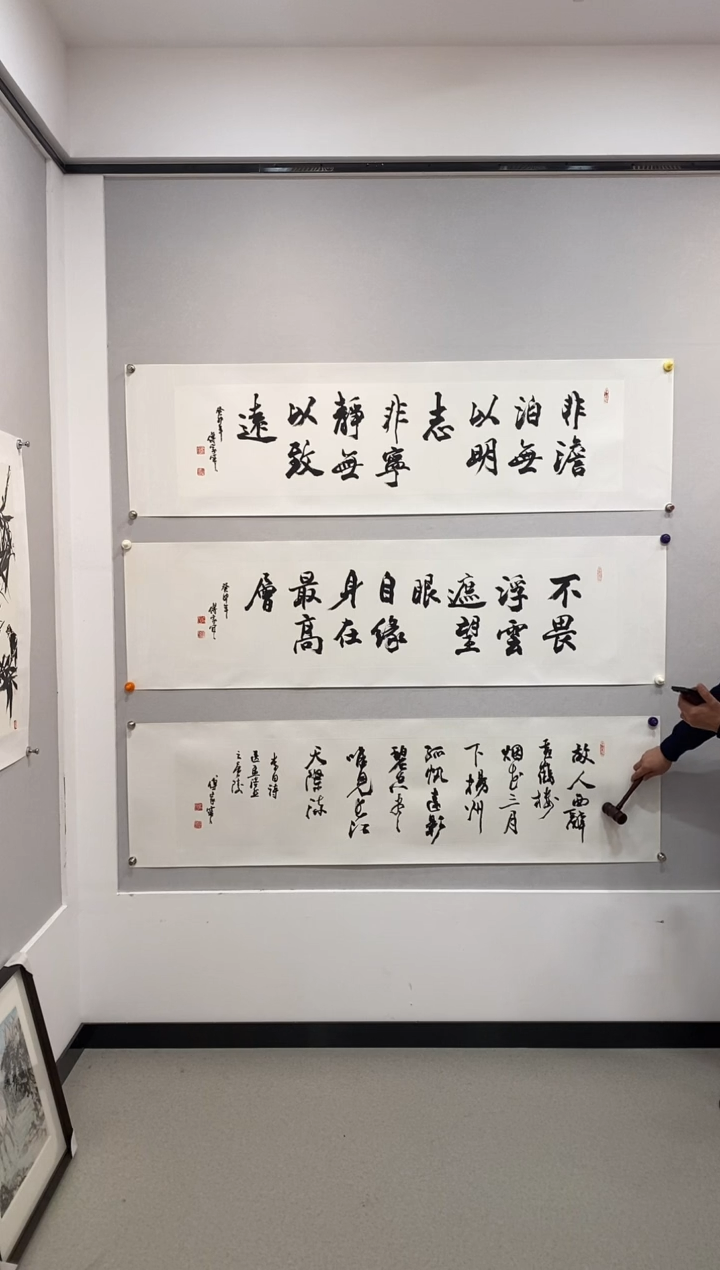 非澹
泊無
以明
志
非寧
靜無
以致
遠
癸卯年
不畏
浮雲
遮望
眼
自緣
身在
最高
層
癸卯年
故人西辭
黄鶴樓
烟花三月
下揚州
孤帆遠影
碧空盡
唯見長江
天際流
李白詩
送孟浩然
之廣陵